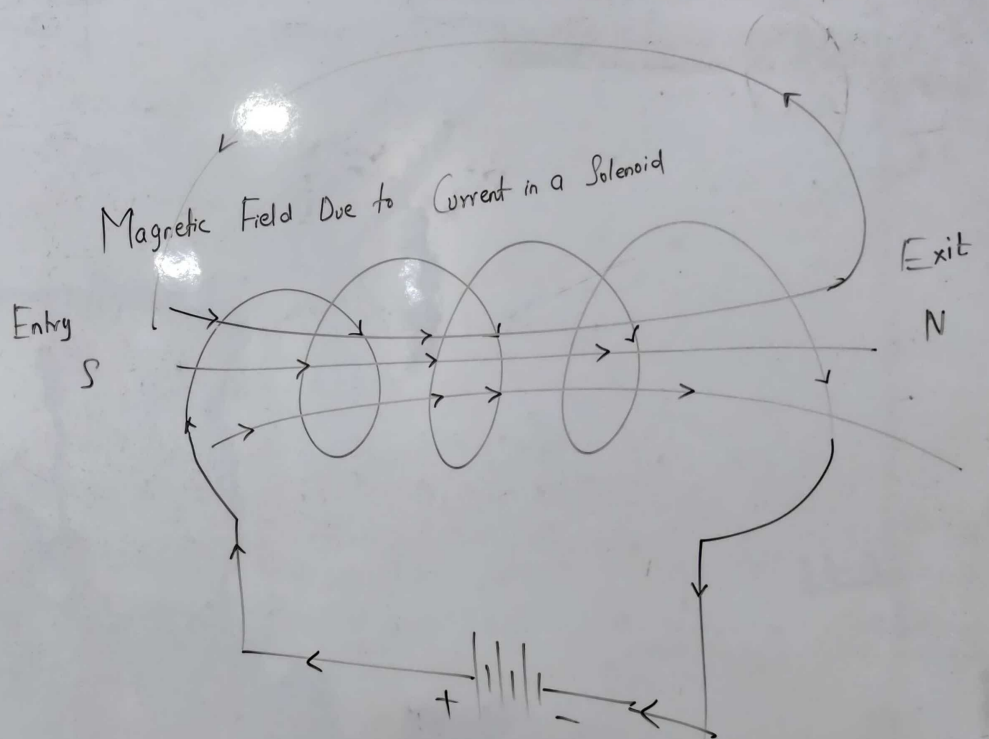 Magnetic Field Due to Current in a Solenoid
Exit
Entry
N
S
+
-